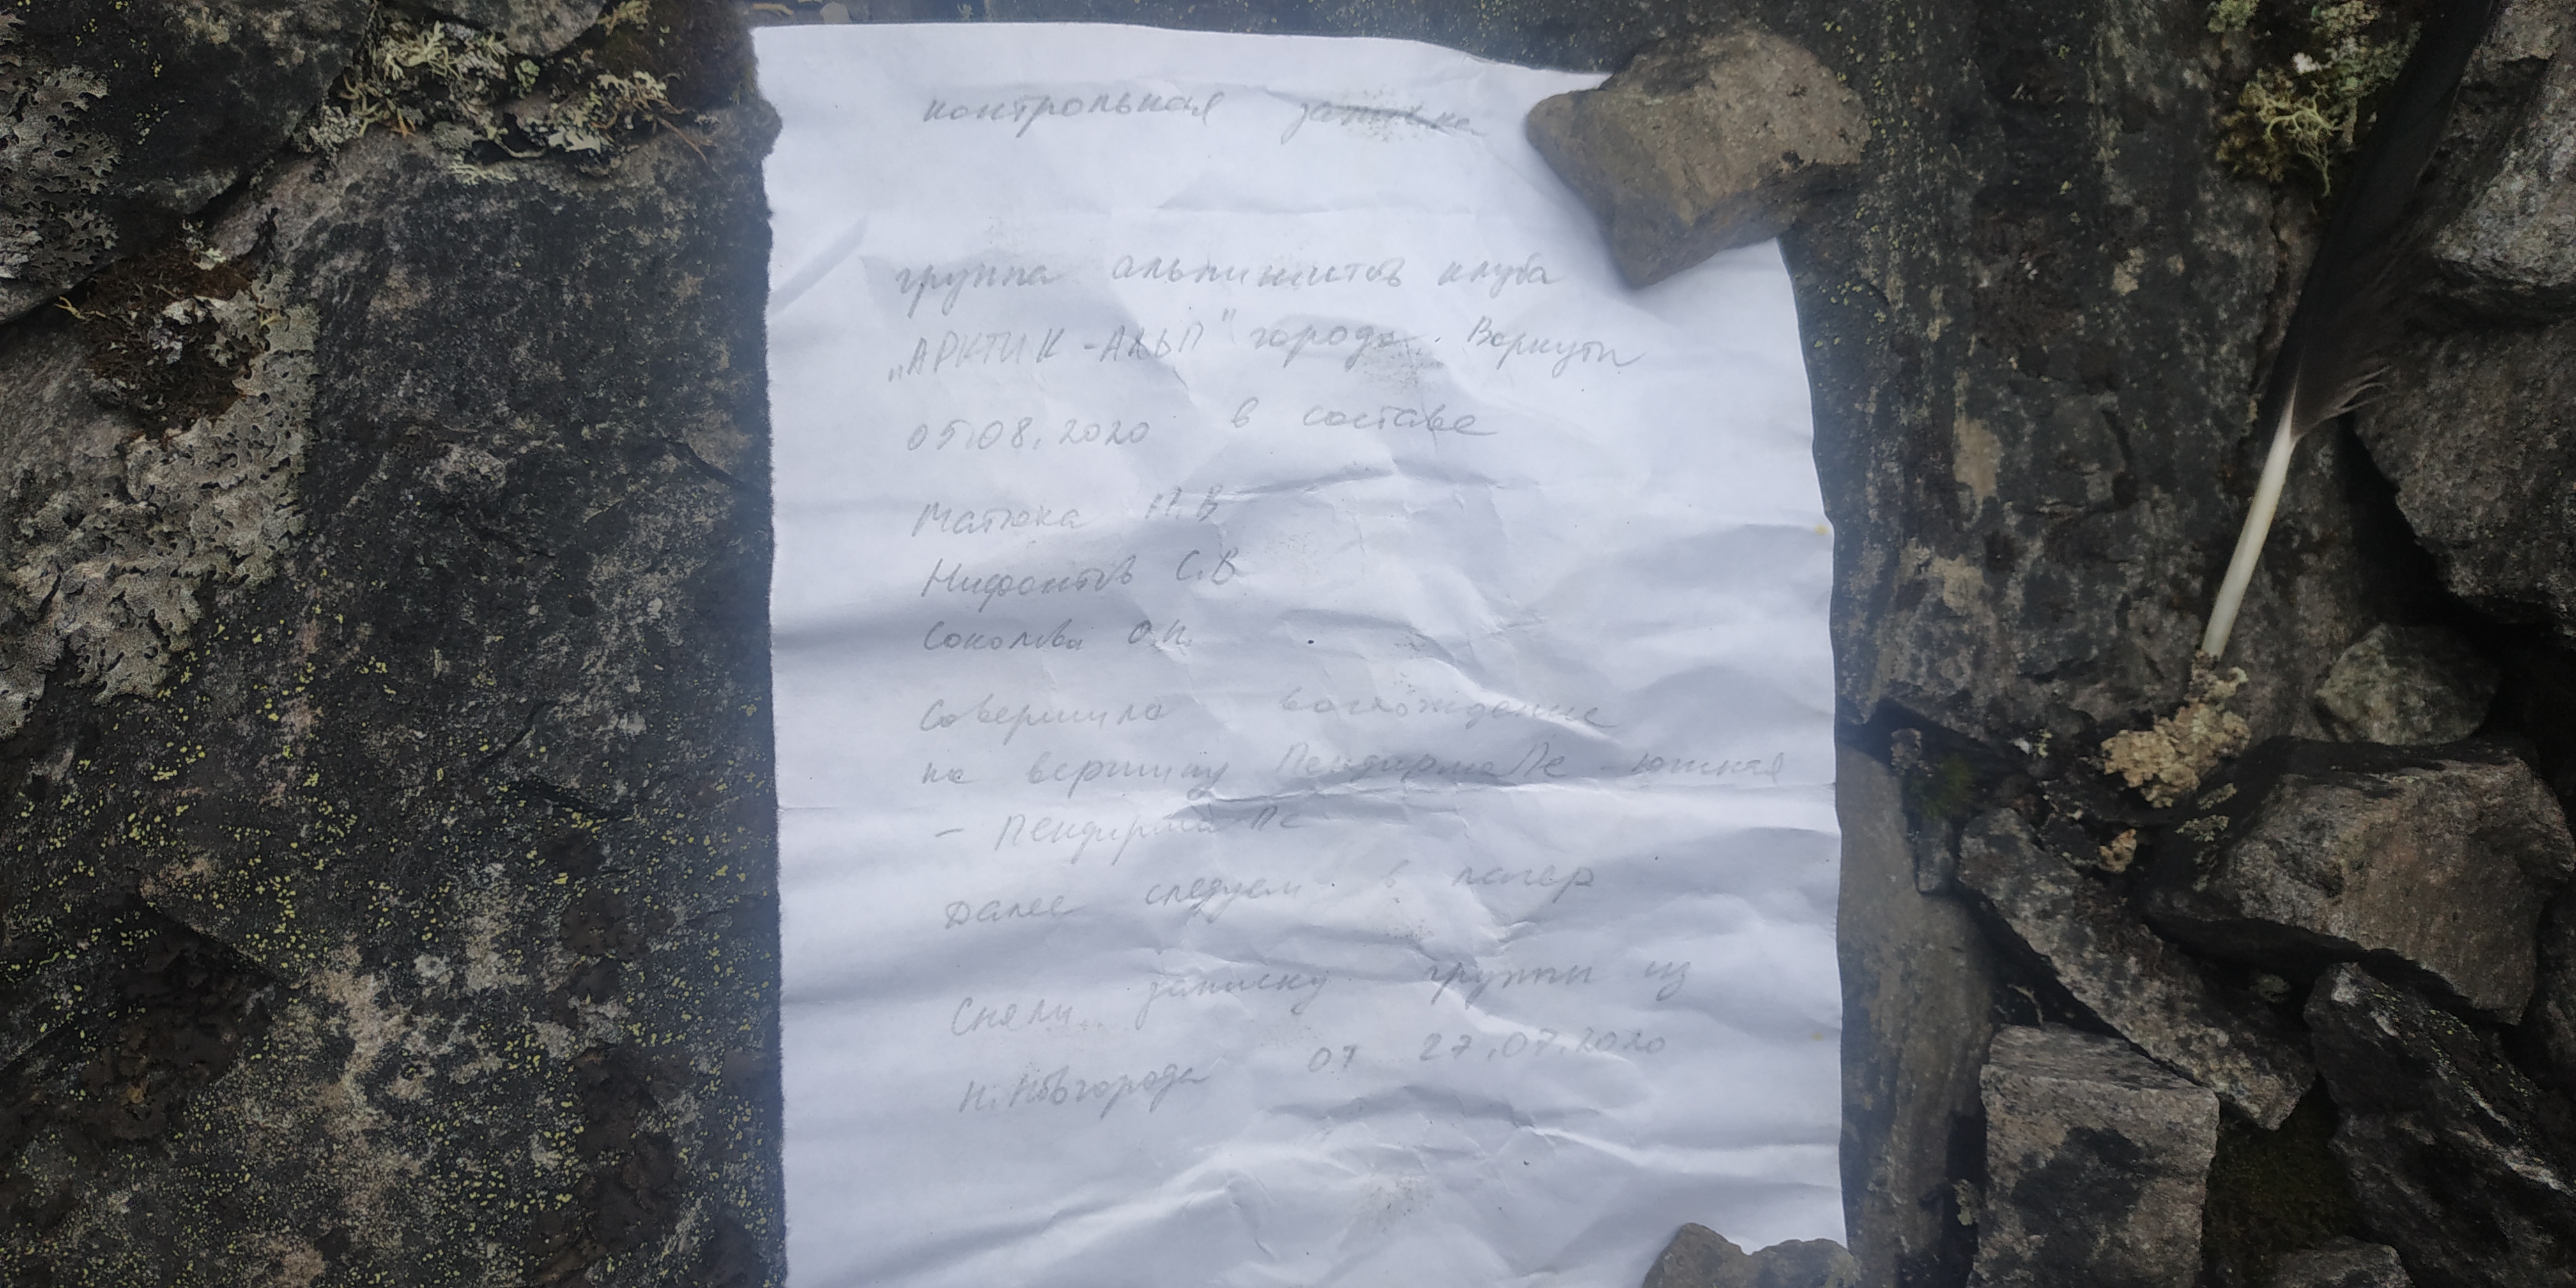 контрольная записка
группа альпинистов клуба
„АРКТИК-АЛЬП" города. Воркуты
05.08.2020 в составе
Матюха П.В
Нифонтов С.В
Соколова О.Н.
Совершила восхождение
на вершину Пендирма Пе - южная
- Пендирма Пе
Далее следуем в лагер
Сняли записку группы из
Н. Новгорода от 27.07.2020